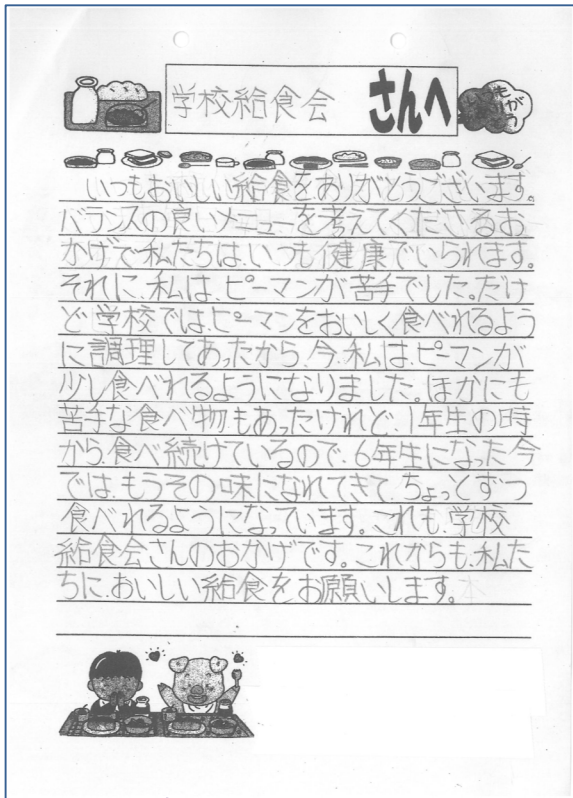 学校給食会 さんへ
いつもおいしい給食をありがとうございます。
バランスの良いメニューを考えてくださるお
かげで私たちは、いつも健康でいられます。
それに、私は、ピーマンが苦手でした。だけ
ど学校では、ピーマンをおいしく食べれるよう
に調理してあったから、今、私はピーマンが
少し食べれるようになりました。ほかにも
苦手な食べ物もあったけれど、1年生の時
から食べ続けているので、6年生になった今
では、もうその味になれてきて、ちょっとずつ
食べれるようになっています。これも、学校
給食会さんのおかげです。これからも、私た
ちに、おいしい給食をお願いします。